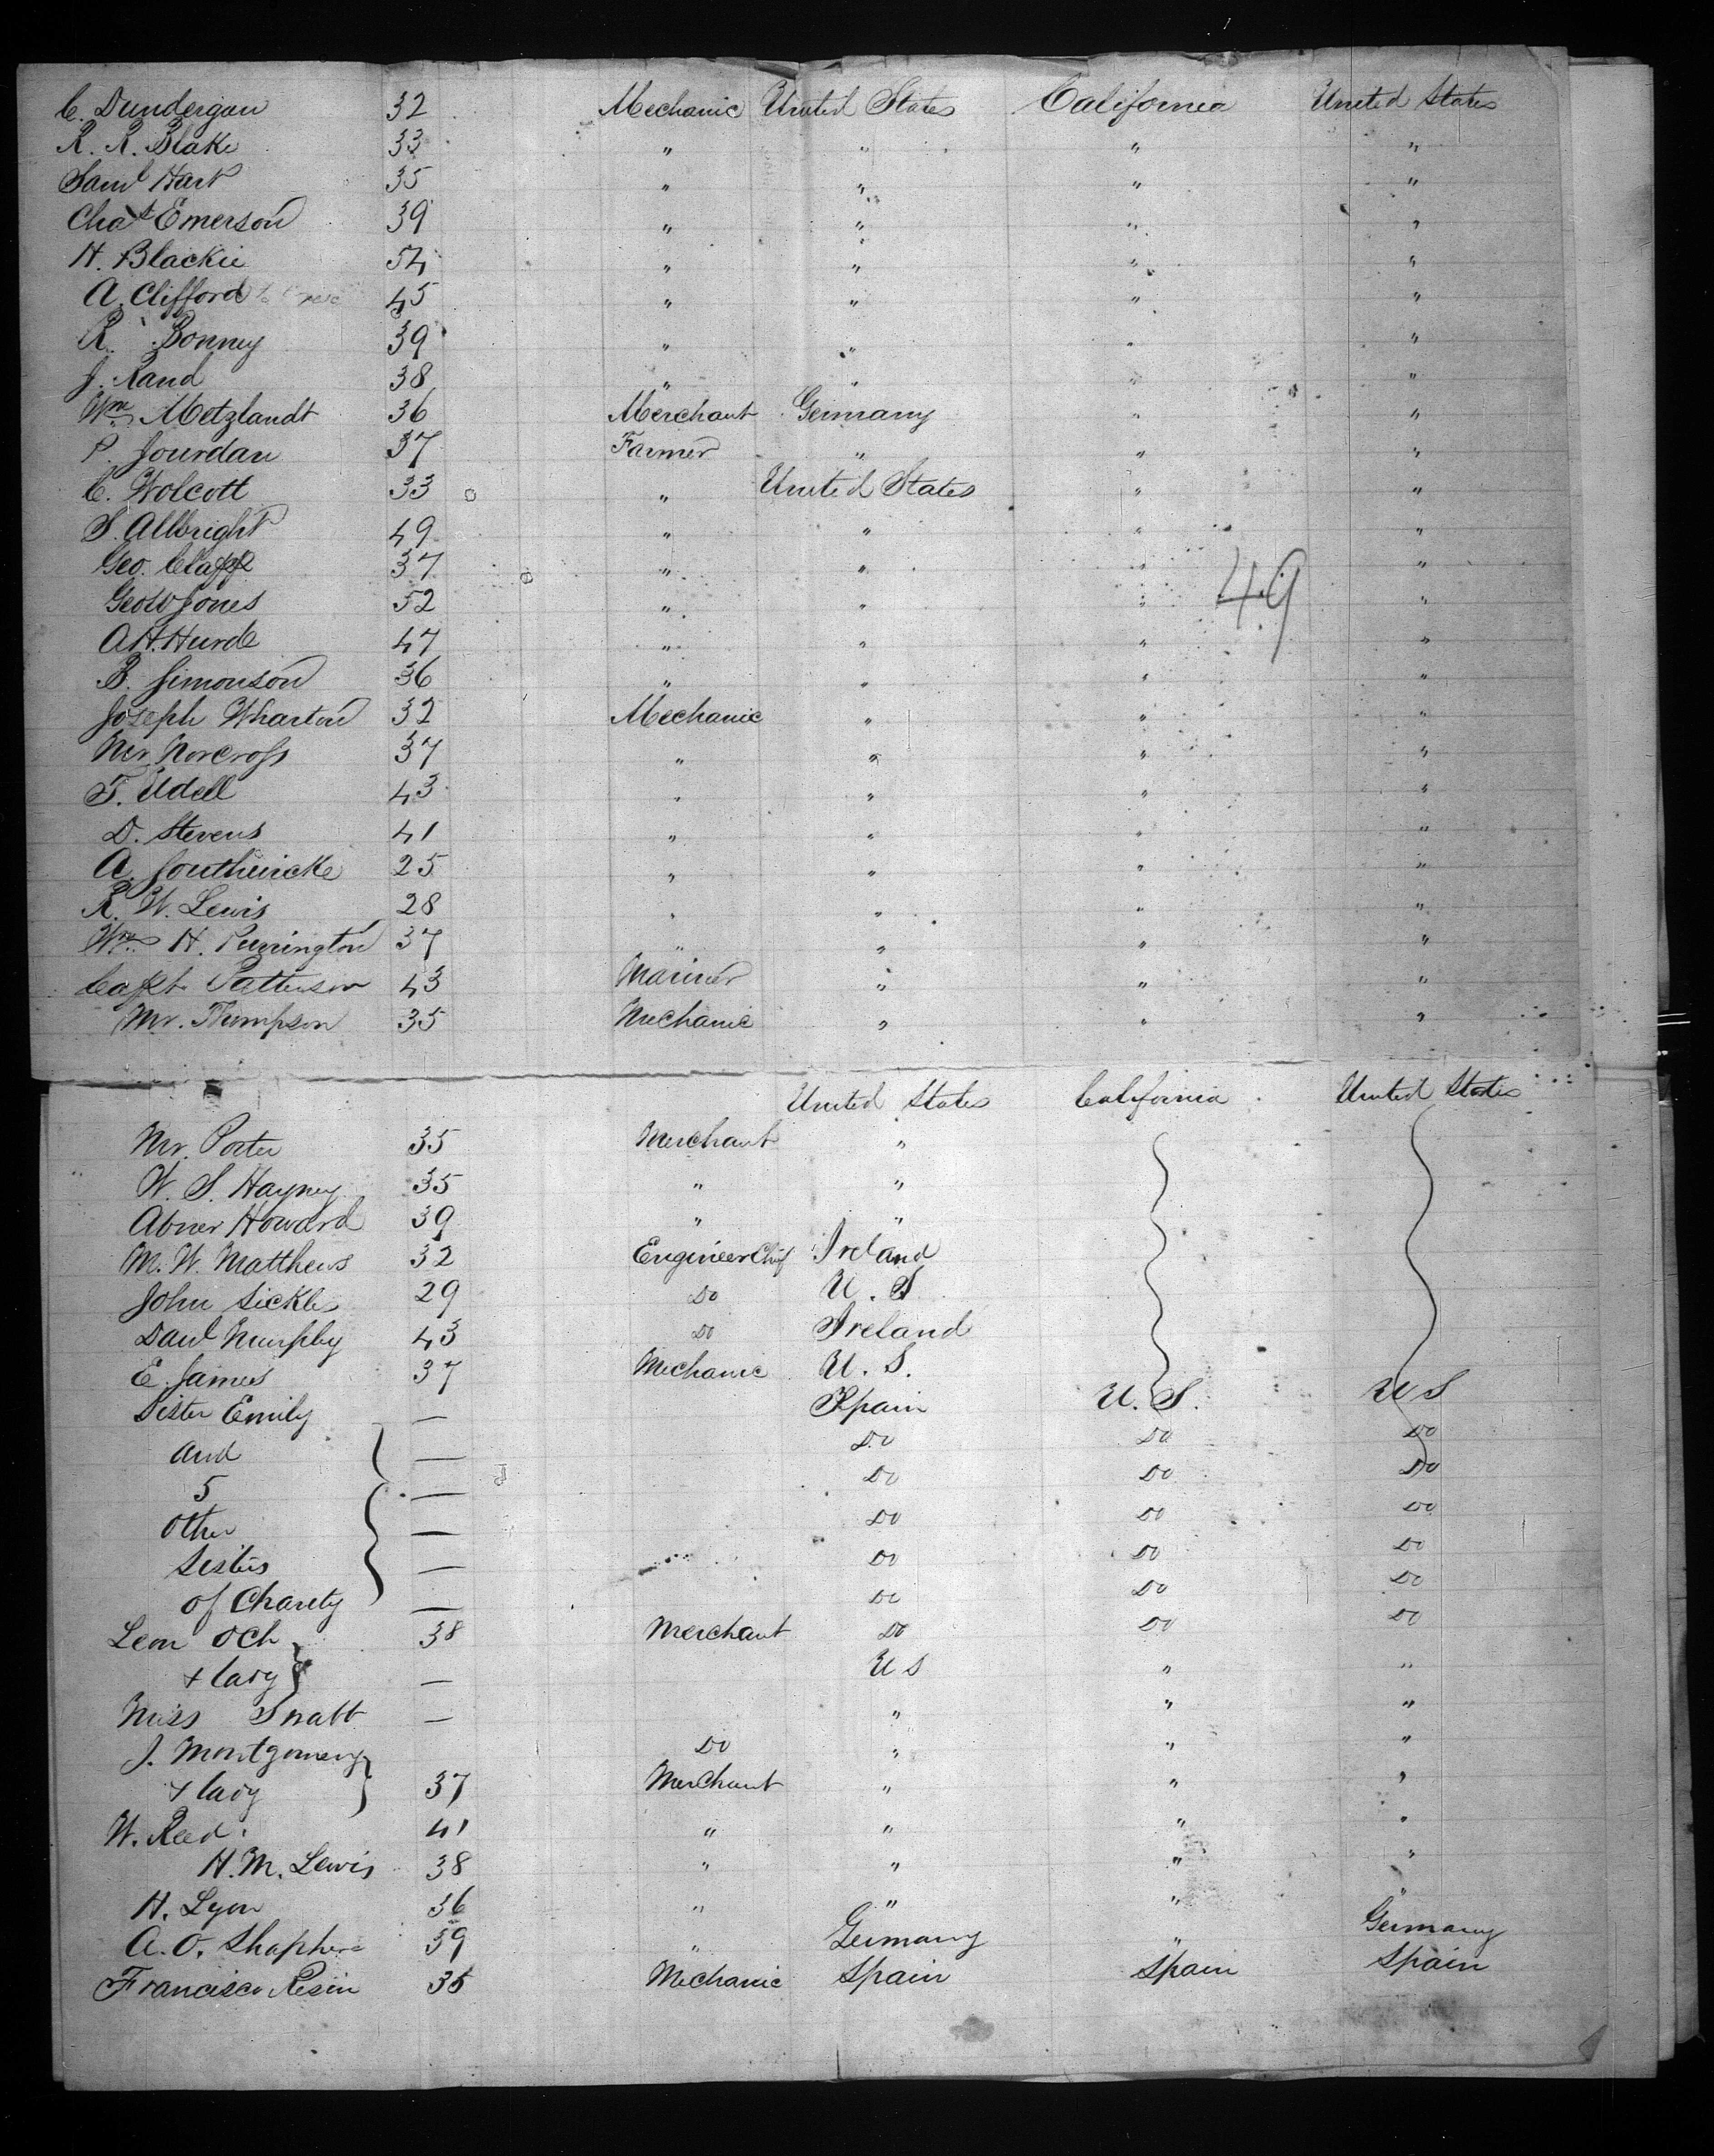 C. Dundergan 32 Mechanic United States California United States
R. R. Blake 33 " " " "
Saml Hart 35 " " " "
Chas Emerson 39 " " " "
H. Blackie 54 " " " "
A. Clifford 45 " " " "
R. Bonney 39 " " " "
J. Rand 38 " " " "
Wm Metzlandt 36 Merchant Germany " "
P. Jourdan 37 Farmer " " "
C. Wolcott 33 " United States " "
S. Allbright 49 " " " "
Geo. Clapp 37 " " " "
Geo W Jones 52 " " " "
49
A H. Hurde 47 " " " "
B. Simonson 36 " " " "
Joseph Wharton 32 Mechanic " " "
Mr Norcross 37 " " " "
T. Udell 43 " " " "
D. Stevens 41 " " " "
A. Southwicke 25 " " " "
R. W. Lewis 28 " " " "
Wm H. Purrington 37 " " " "
Capt Patterson 43 Mariner " " "
Mr. Thompson 35 Mechanic " " "
United States California United States
Mr. Porter 35 Merchant "
W. S. Hayney 35 " "
Abner Howard 39 " "
M. W. Matthews 32 Engineer Chif Ireland
John Sickles 29 Do U. S
Danl Murphy 43 Do Ireland
E. James 37 Mechanic U. S.
Sister Emily — Spain U. S. U S
and — Do Do Do
5 — Do Do Do
other — Do Do Do
Sisters — Do Do Do
of Charity — Do Do Do
Leon Och 38 Merchant Do Do Do
+ lady — U S " "
Miss Snatt — " " "
J. Montgomery Do " " "
+ lady 37 Merchant " " "
W. Reed. 41 " " " "
H. M. Lewis 38 " " " "
H. Lyon 36 " " " "
A. O. Shapher 39 " Germany " Germany
Francisco Resin 35 Mechanic Spain Spain Spain